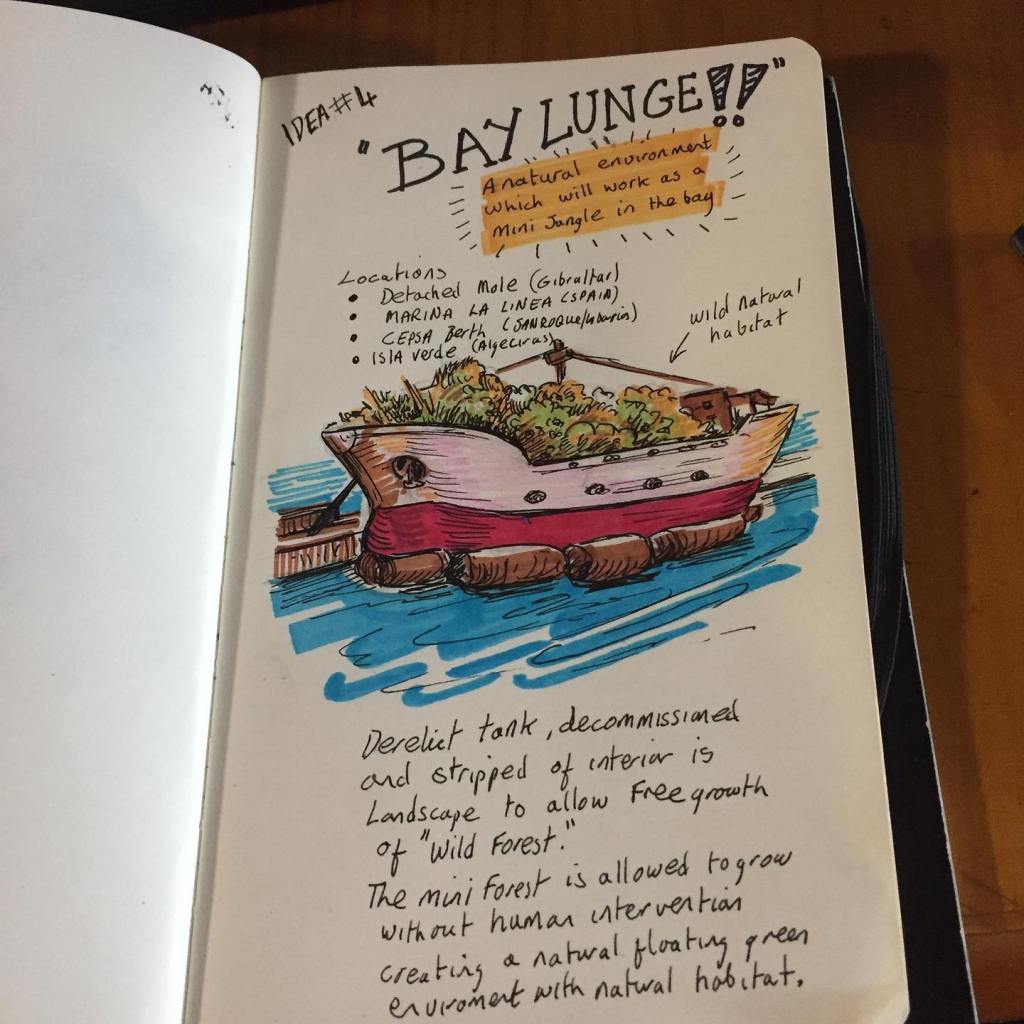 IDEA#4
"BAY LUNGE!!"
A natural environment
which will work as a
mini Jungle in the bay
Locations
• Detached Mole (Gibraltar)
• MARINA LA LINEA (SPAIN)
• CEPSA Berth (SANROQUE/
• ISLA Verde (Algeciras)
wild natural
habitat
Derelict tank, decommissioned
and stripped of interior is
Landscape to allow Free growth
of "Wild Forest."
The mini Forest is allowed to grow
without human intervention
creating a natural floating green
enviroment with natural habitat.